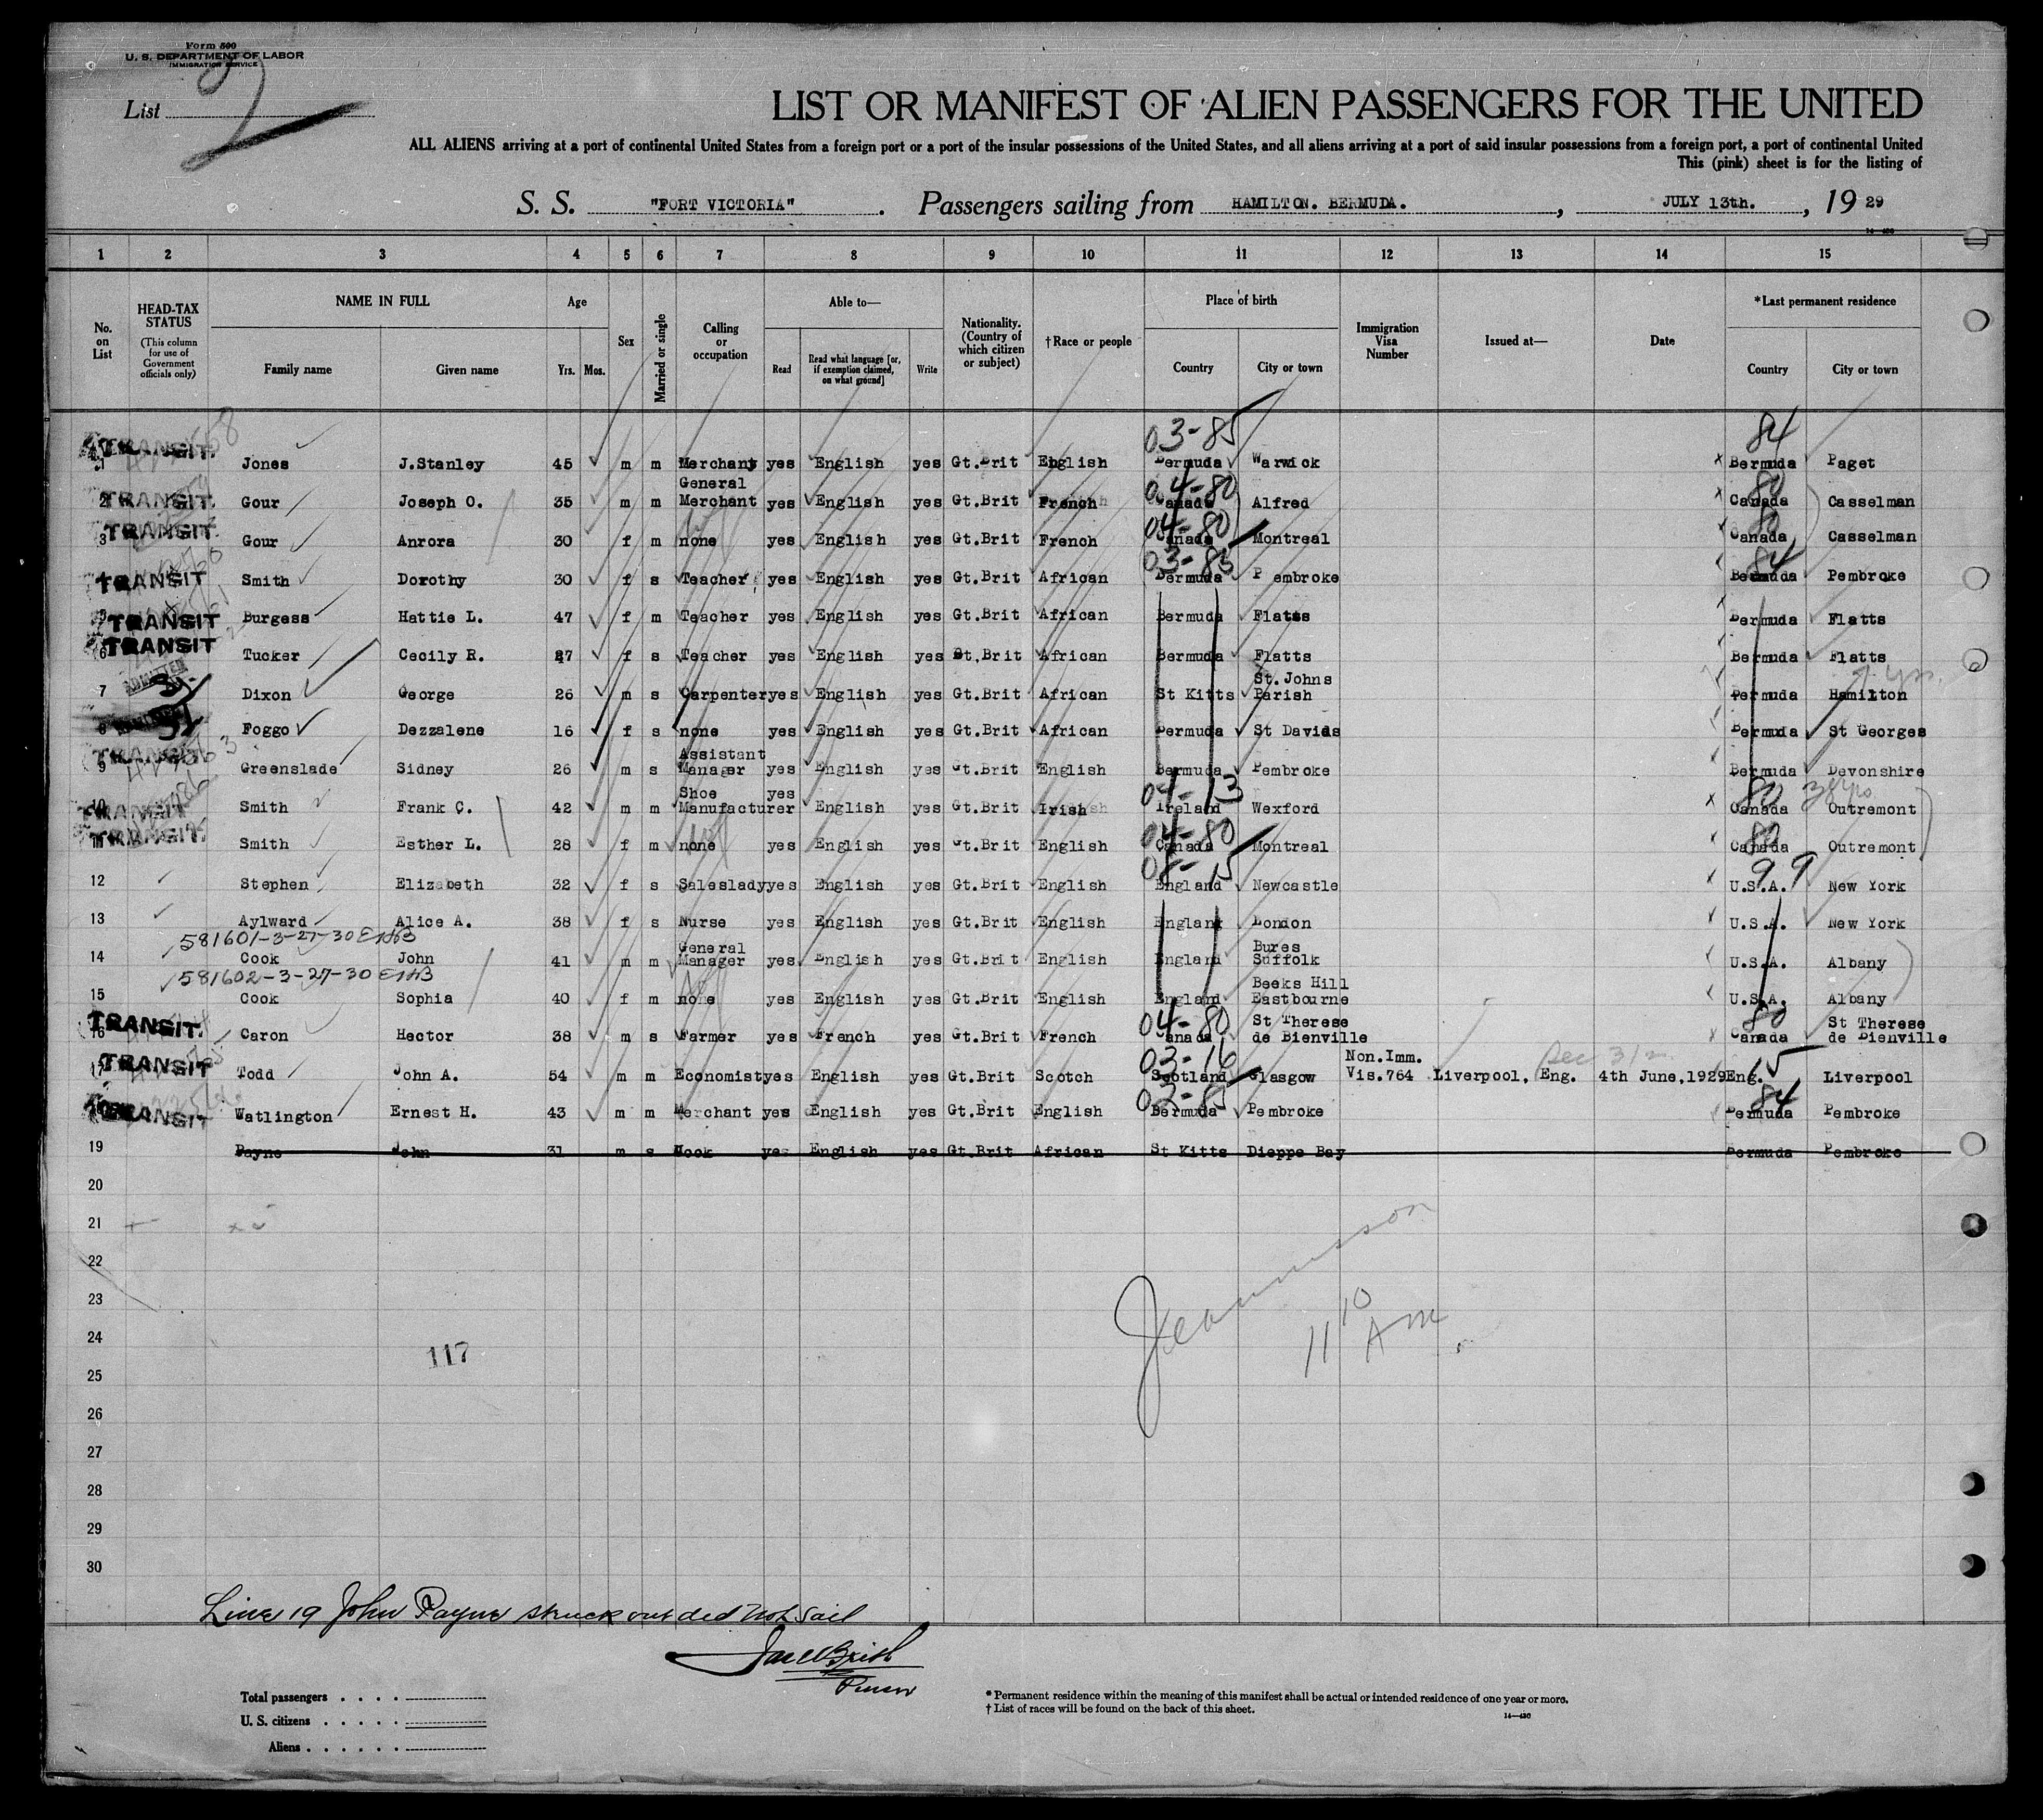 Form 500
U. S. DEPARTMENT OF LABOR
IMMIGRATION SERVICE
List 2
LIST OR MANIFEST OF ALIEN PASSENGERS FOR THE UNITED
ALL ALIENS arriving at a port of continental United States from a foreign port or a port of the insular possessions of the United States, and all aliens arriving at a port of said insular possessions from a foreign port, a port of continental United
This (pink) sheet is for the listing of
S. S. "FORT VICTORIA". Passengers sailing from HAMILTON. BERMUDA. , JULY 13th. , 19 29
1 2 3 4 5 6 7 8 9 10 11 12 13 14 15
No. on List
HEAD-TAX STATUS (This column for use of Government officials only)
NAME IN FULL
Family name Given name
Age
Yrs. Mos.
Sex
Married or single
Calling or occupation
Able to—
Read
Read what language [or, if exemption claimed, on what ground]
Write
Nationality. (Country of which citizen or subject)
†Race or people
Place of birth
Country City or town
Immigration Visa Number
Issued at—
Date
*Last permanent residence
Country City or town
03-85 84
TRANSIT 1 Jones J.Stanley 45 m m Merchant yes English yes Gt.Brit English Bermuda Warwick Bermuda Paget
General 04-80 80
TRANSIT 2 Gour Joseph O. 35 m m Merchant yes English yes Gt.Brit French Canada Alfred Canada Casselman
04-80 80
TRANSIT 3 Gour Anrora 30 f m none yes English yes Gt.Brit French Canada Montreal Canada Casselman
03-85 84
TRANSIT 4 Smith Dorothy 30 f s Teacher yes English yes Gt.Brit African Bermuda Pembroke Bermuda Pembroke
TRANSIT 5 Burgess Hattie L. 47 f m Teacher yes English yes Gt.Brit African Bermuda Flatts Bermuda Flatts
TRANSIT 6 Tucker Cecily R. 27 f s Teacher yes English yes Gt.Brit African Bermuda Flatts Bermuda Flatts
ADMITTED St.Johns 7 yrs.
7 Dixon George 26 m s Carpenter yes English yes Gt.Brit African St Kitts Parish Bermuda Hamilton
8 Foggo Dezzalene 16 f s none yes English yes Gt.Brit African Bermuda St Davids Bermuda St Georges
Assistant
TRANSIT 9 Greenslade Sidney 26 m s Manager yes English yes Gt.Brit English Bermuda Pembroke Bermuda Devonshire
Shoe yes 04-13 80
TRANSIT 10 Smith Frank C. 42 m m Manufacturer English yes Gt.Brit Irish Ireland Wexford Canada Outremont
04-80 80
TRANSIT 11 Smith Esther L. 28 f m none yes English yes Gt.Brit English Canada Montreal Canada Outremont
08-15 99
12 Stephen Elizabeth 32 f s Saleslady yes English yes Gt.Brit English England Newcastle U.S.A. New York
13 Aylward Alice A. 38 f s Nurse yes English yes Gt.Brit English England London U.S.A. New York
581601-3-27-30 General Bures
14 Cook John 41 m m Manager yes English yes Gt.Brit English England Suffolk U.S.A. Albany
581602-3-27-30 Beeks Hill
15 Cook Sophia 40 f m none yes English yes Gt.Brit English England Eastbourne U.S.A. Albany
04-80 St Therese 80 St Therese
TRANSIT. 16 Caron Hector 38 m s Farmer yes French yes Gt.Brit French Canada de Bienville Canada de Bienville
03-16 Non.Imm. 15
TRANSIT 17 Todd John A. 54 m m Economist yes English yes Gt.Brit Scotch Scotland Glasgow Vis.764 Liverpool, Eng. 4th June,1929 Eng. Liverpool
03-85 84
TRANSIT 18 Watlington Ernest H. 43 m m Merchant yes English yes Gt.Brit English Bermuda Pembroke Bermuda Pembroke
19 Payne John 31 m s Cook yes English yes Gt.Brit African St Kitts Dieppe Bay Bermuda Pembroke
20
21
22
23
24
117
11 10 AM
25
26
27
28
29
30
Line 19 John Payne struck out did not sail
Purser
Total passengers
U. S. citizens
Aliens
* Permanent residence within the meaning of this manifest shall be actual or intended residence of one year or more.
† List of races will be found on the back of this sheet.
14—430